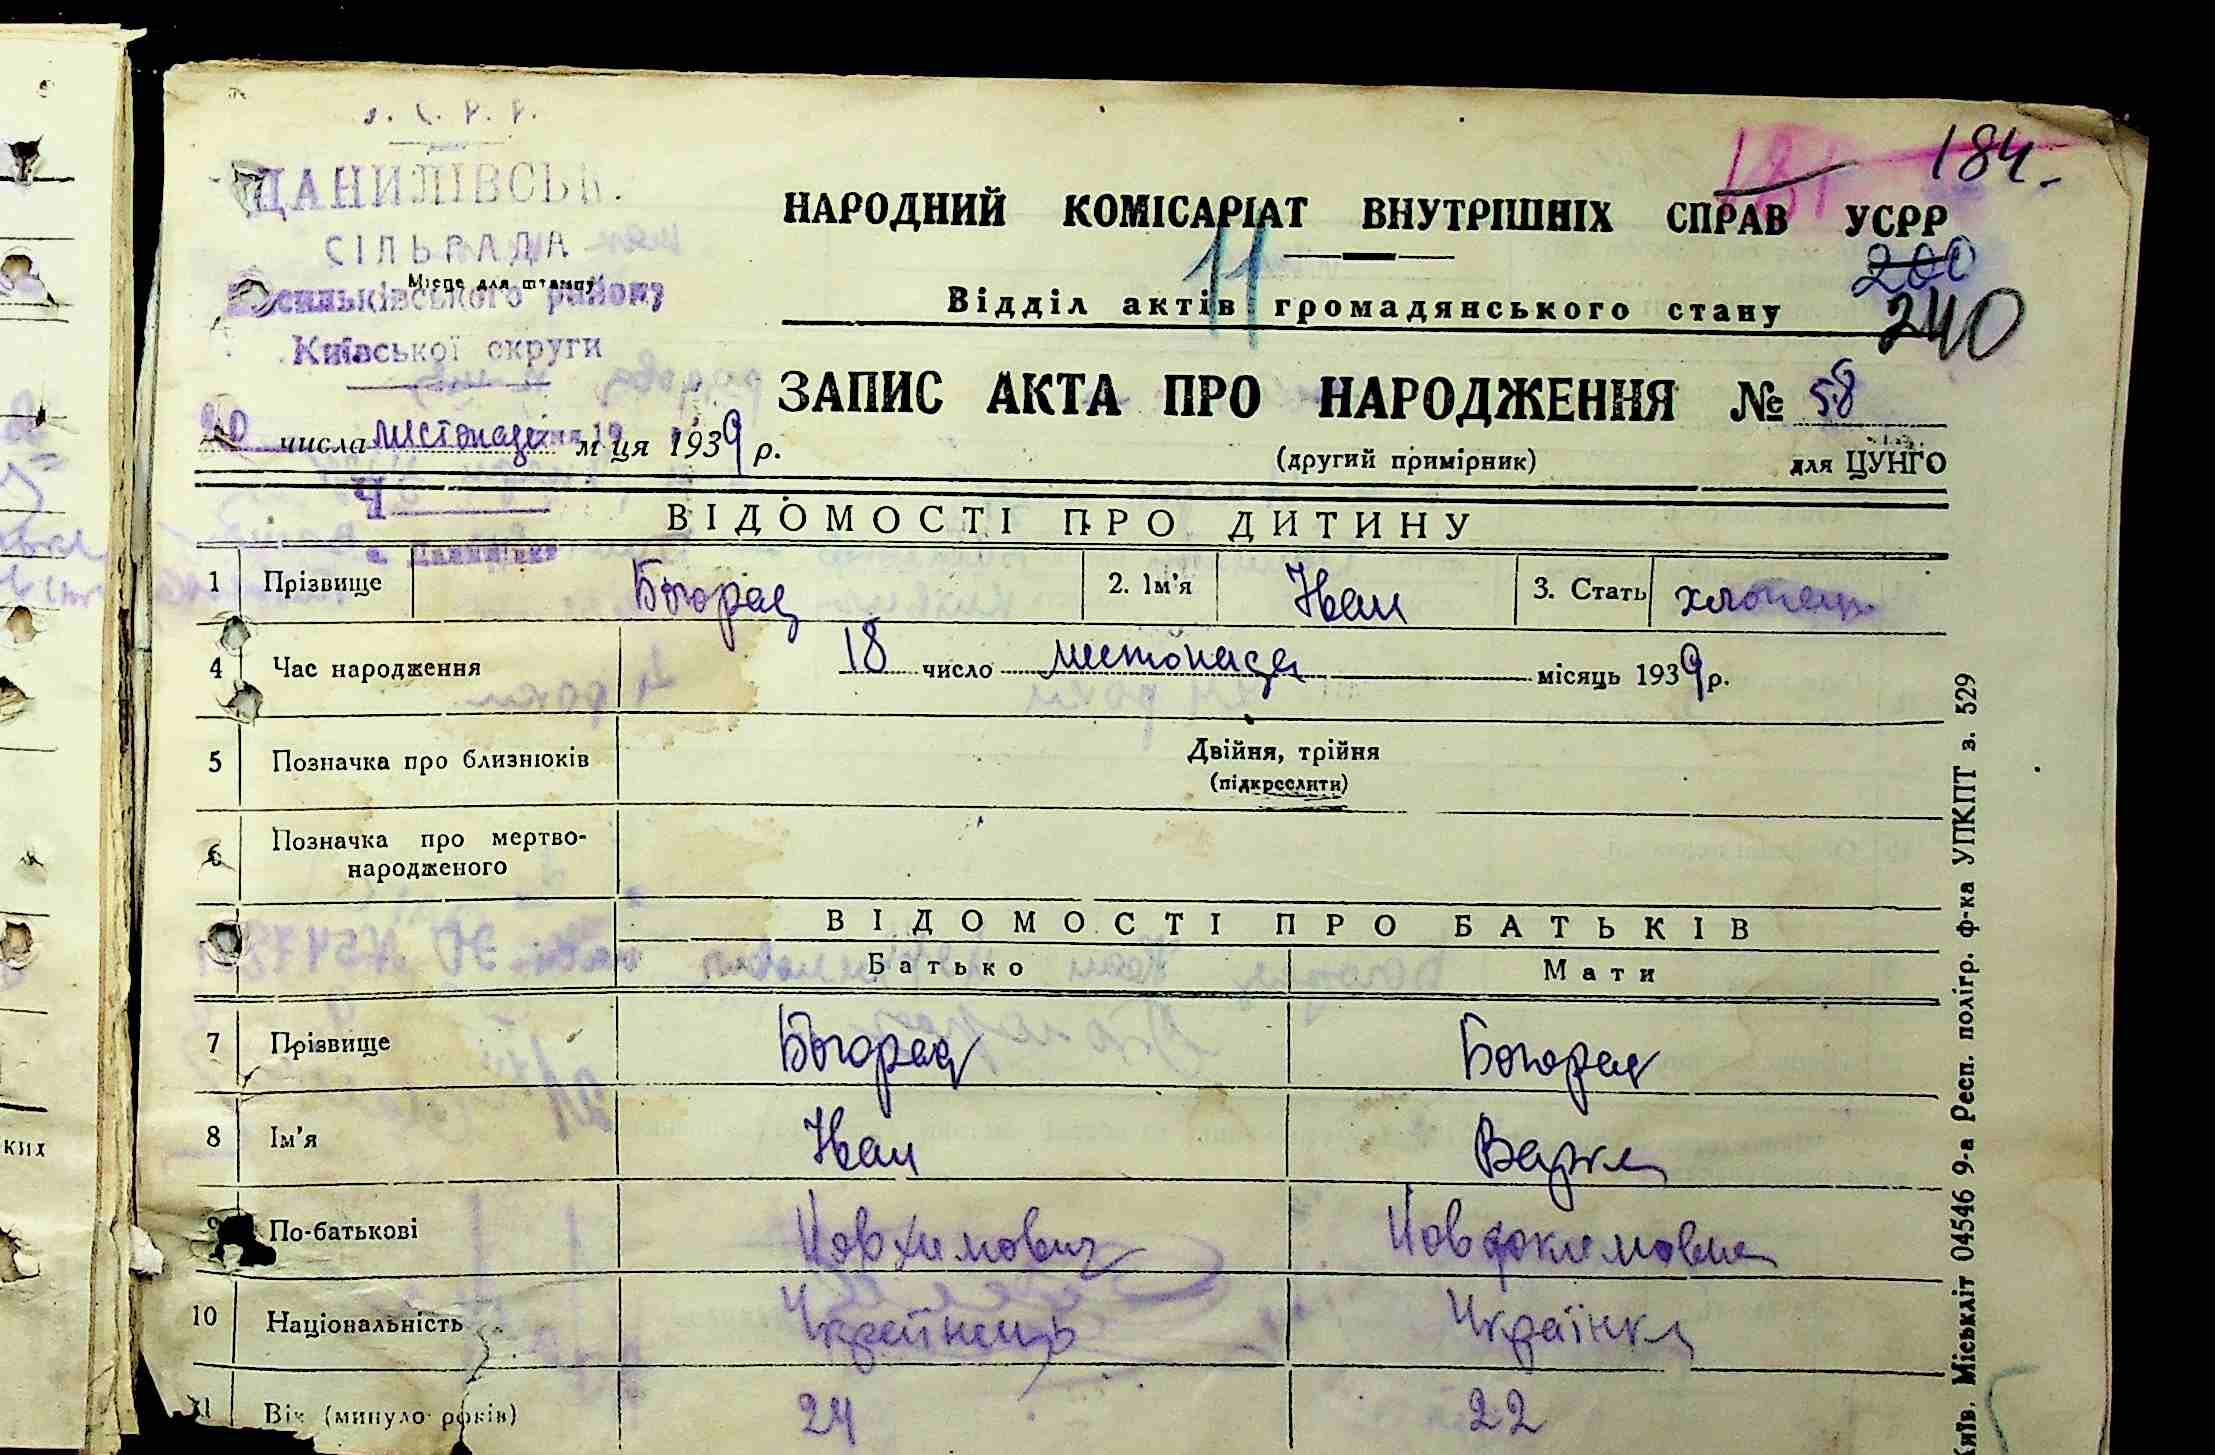 ДАНИЛІВСЬК.
СІЛЬРАДА
Місце для штампу
Васильківського району
Київської округи
184.
181
НАРОДНИЙ КОМІСАРІАТ ВНУТРІШНІХ СПРАВ УСРР
11
200
240
Відділ актів громадянського стану
ЗАПИС АКТА ПРО НАРОДЖЕННЯ № 58
20 числа листопада м ця 1939 р.
(другий примірник) для ЦУНГО
ВІДОМОСТІ ПРО ДИТИНУ
с. Данилівка
1 Прізвище Богорад 2. Ім'я Іван 3. Стать хлопець
4 Час народження 18 число листопада місяць 1939 р.
5 Позначка про близнюків Двійня, трійня
(підкреслити)
6 Позначка про мертво-
народженого
ВІДОМОСТІ ПРО БАТЬКІВ
Батько Мати
7 Прізвище Богорад Богорад
8 Ім'я Іван Варка
9 По-батькові Йовхимович Йовдокимовна
10 Національність Українець Українка
11 Вік (минуло років) 24 22
Київ. Міськліт 04546 9-а Респ. полігр. ф-ка УПКПТ з. 529
ких